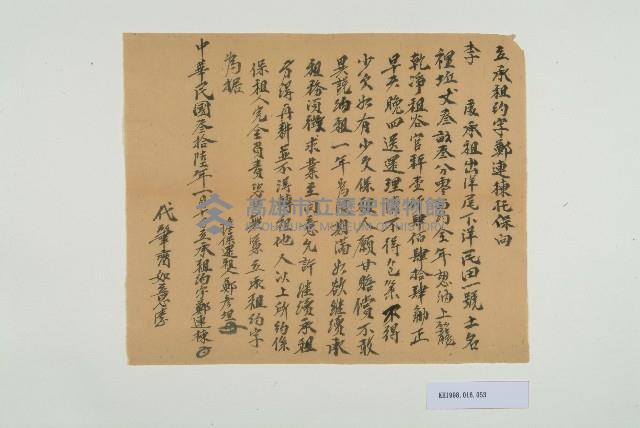 立承租約字鄭連棟托保向
李 處承租出洋尾下洋民田一號土名
裡坵丈叁畝叁分零 約全年愿納上籠
乾淨租谷官秤壹 佰肆拾肆觔正
早六晚四送運理 不得包 不得
少欠如有少欠保 人願甘賠償不敢
異說納租一年為 滿如欲繼續承
租務須徵求業主同意允許繼續承租
方得再耕並不得轉租他人以上所約係
保租人完全負責恐 無憑立承租約字
為據
中華民國叁拾陸年 月 立承租約字鄭連棟
擔保運 鄭彥
代筆齊如意
高雄市立歷史博物館
KAOHSIUNG MUSEUM OF HISTORY
KH1998.016.053